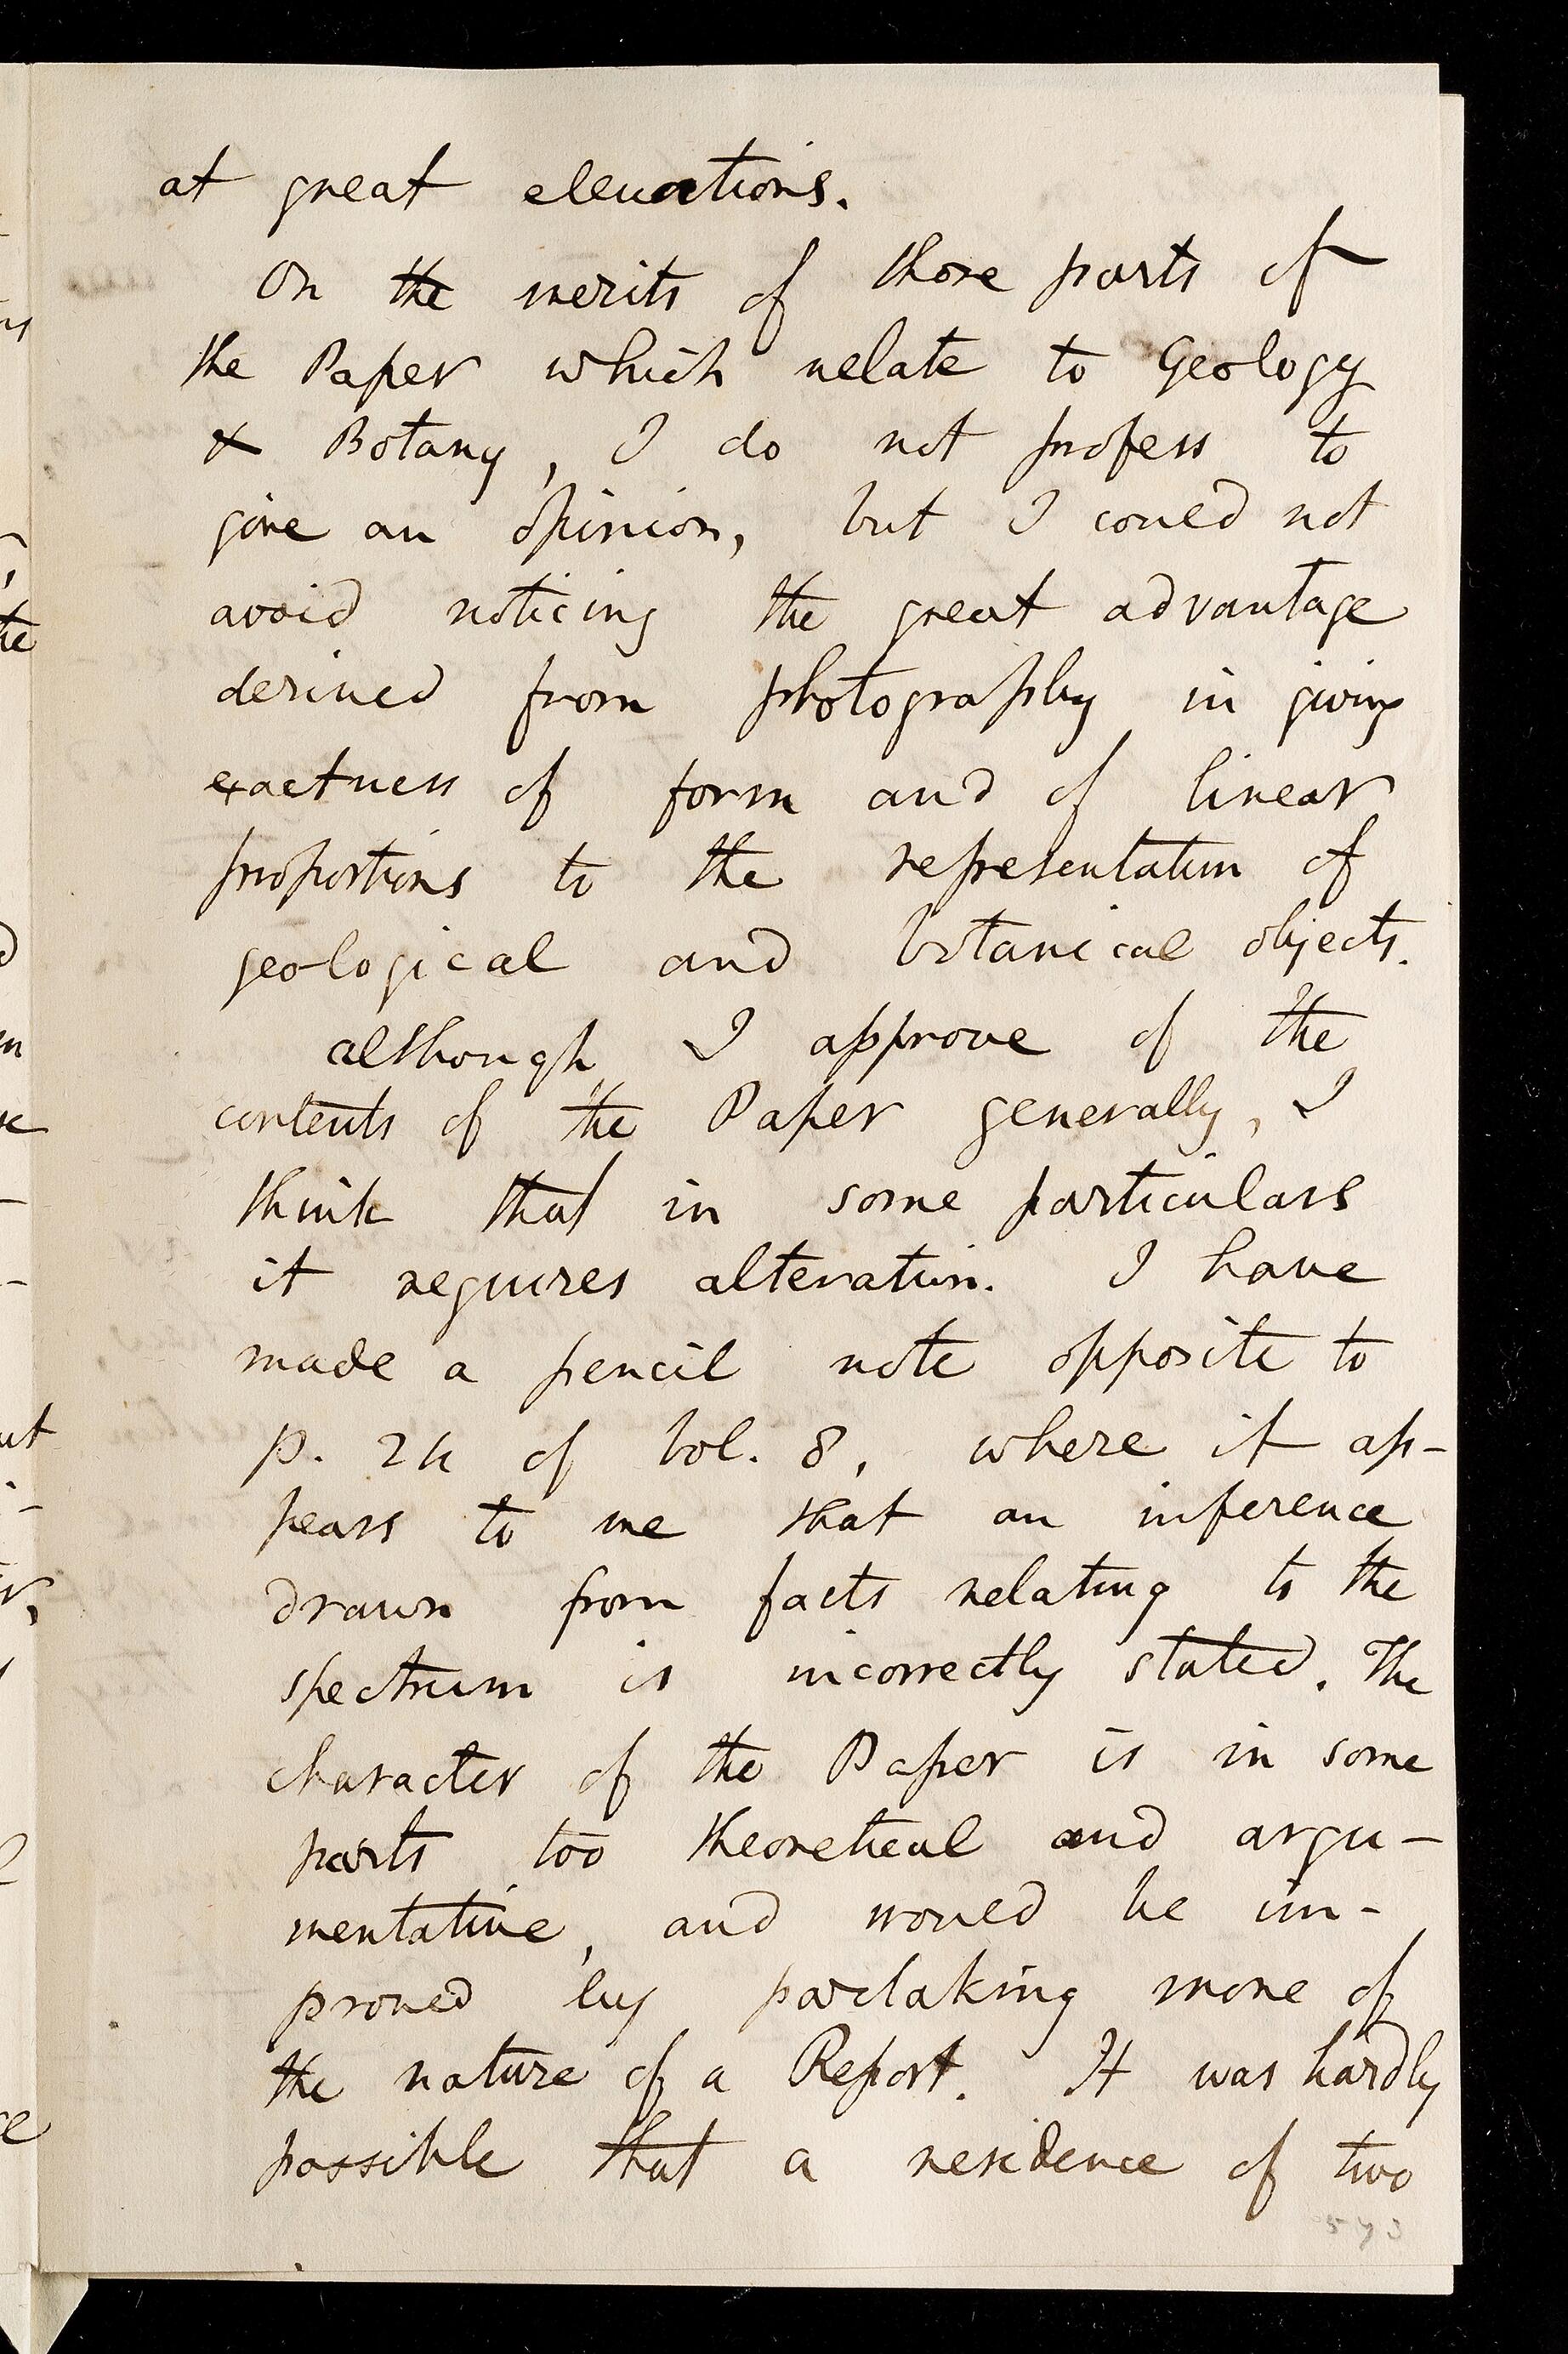 at great elevations.
On the merits of those parts of
the Paper which relate to Geology
& Botany, I do not profess to
give an opinion, but I could not
avoid noticing the great advantage
derived from photography in giving
exactness of form and of linear
proportions to the representation of
geological and botanical objects.
Although I approve of the
contents of the Paper generally, I
think that in some particulars
it requires alteration. I have
made a pencil note opposite to
p. 24 of Vol. 8, where it ap-
pears to me that an inference
drawn from facts relating to the
spectrum is incorrectly stated. The
character of the Paper is in some
parts too theoretical and argu-
mentative, and would be im-
proved by partaking more of
the nature of a Report. It was hardly
possible that a residence of two